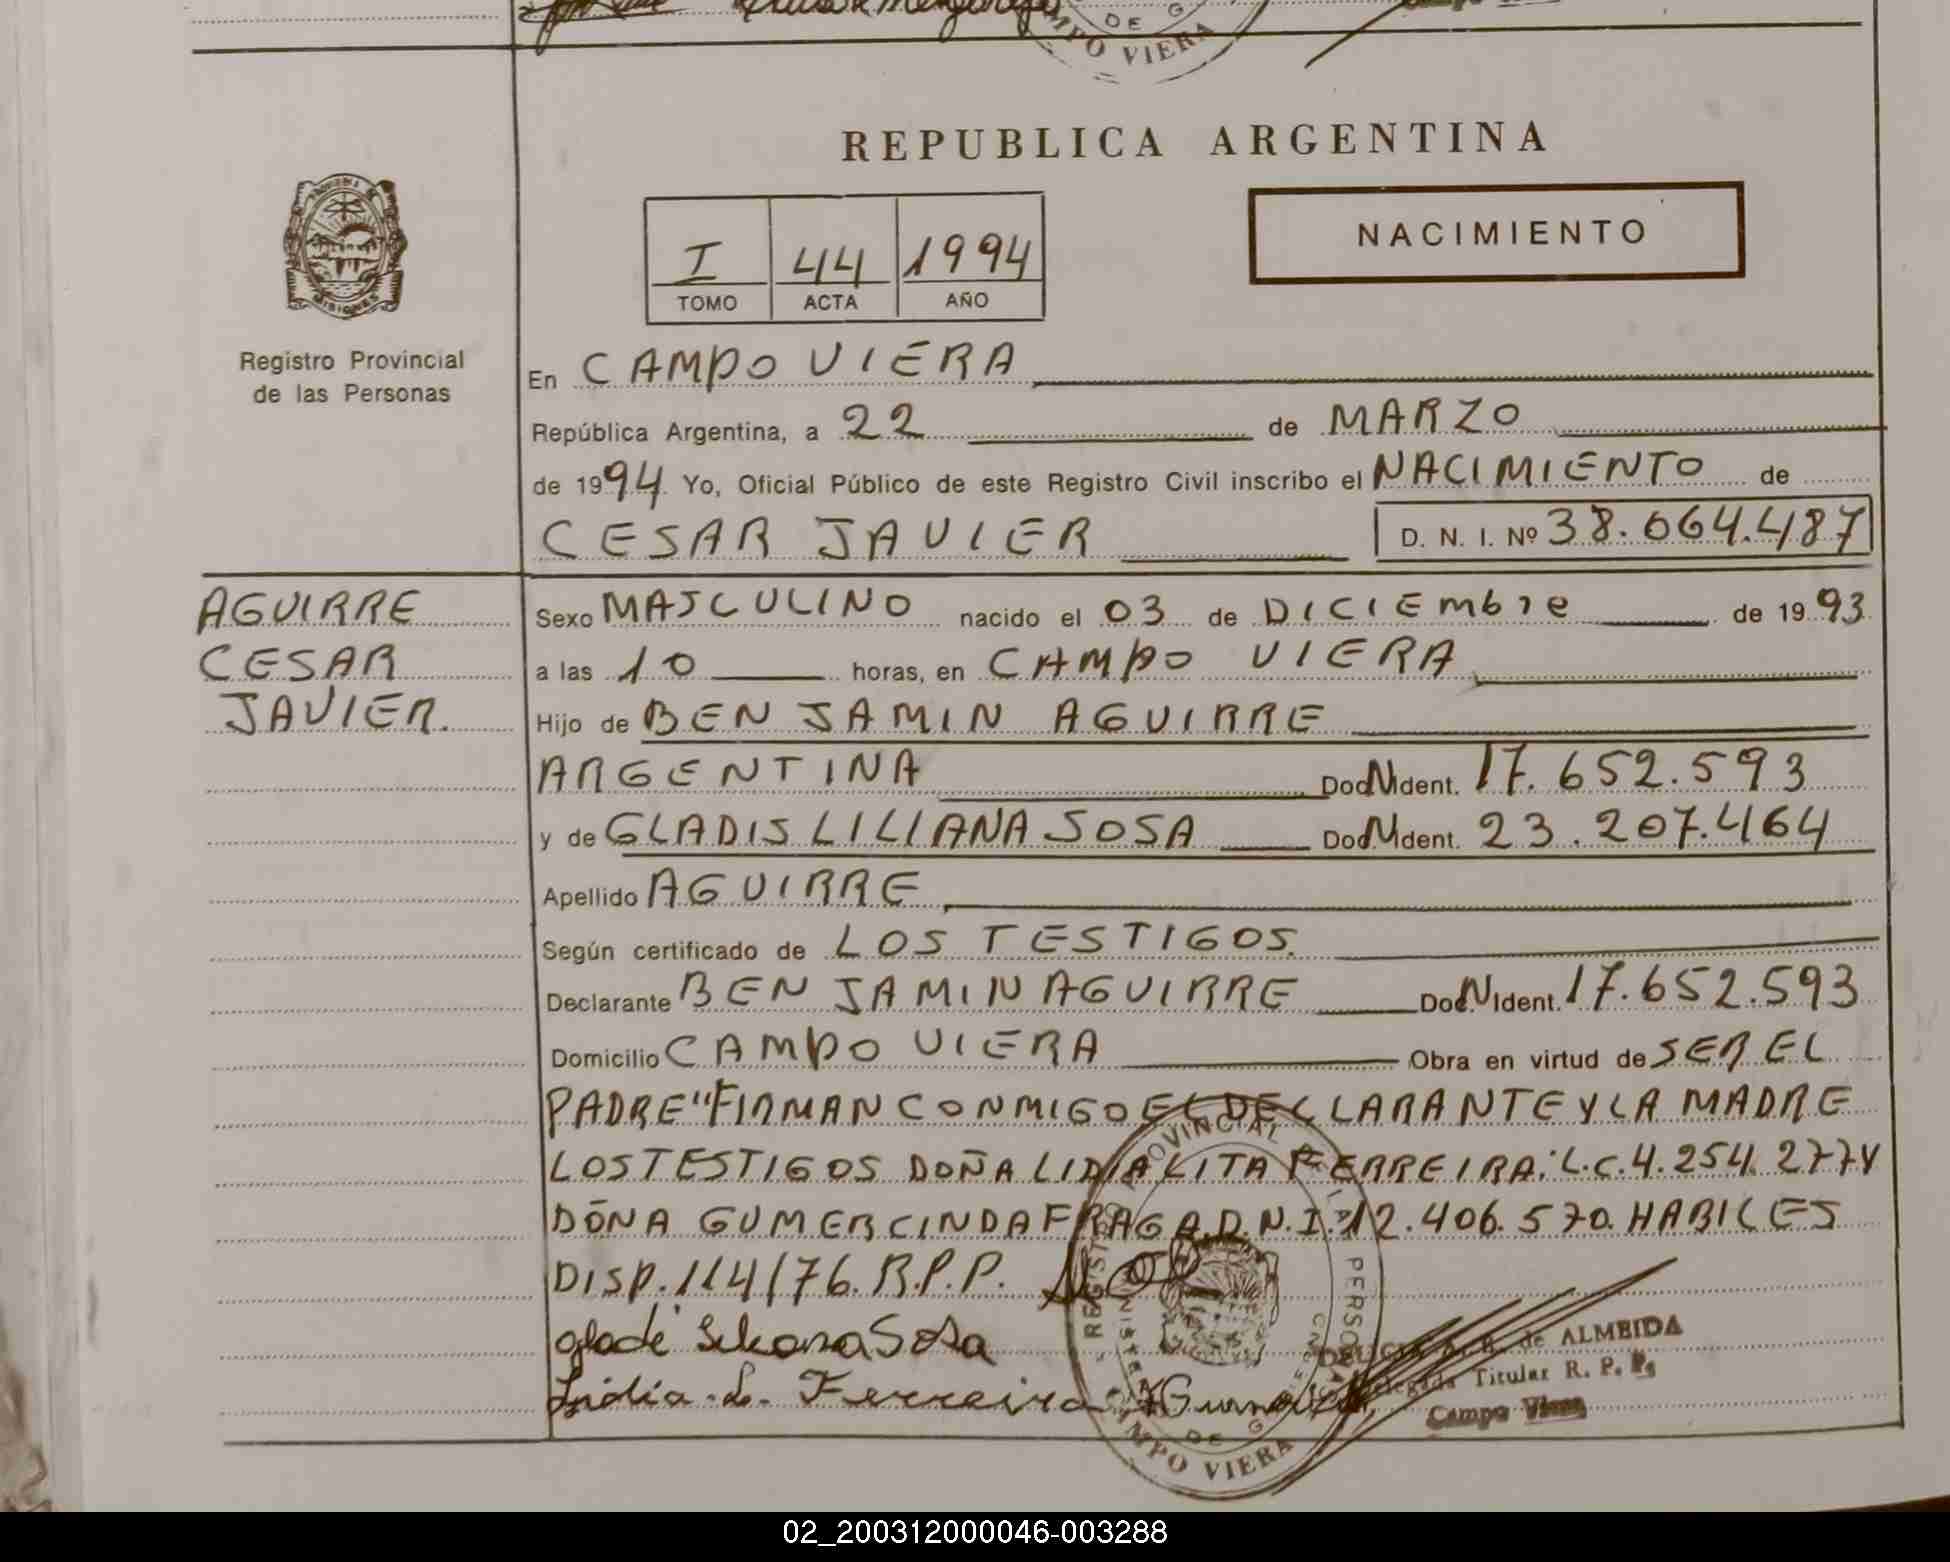 DE G
CAMPO VIERA
REPUBLICA ARGENTINA
NACIMIENTO
I 44 1994
TOMO ACTA AÑO
MISIONES
Registro Provincial
de las Personas
En CAMPO VIERA
República Argentina, a 22 de MARZO
de 1994 Yo, Oficial Público de este Registro Civil inscribo el NACIMIENTO de
CESAR JAVIER D. N. I. Nº 38.064.487
AGUIRRE
CESAR
JAVIER.
Sexo MASCULINO nacido el 03 de DICIEmbre de 1993
a las 10 horas, en CAMPO VIERA
Hijo de BENJAMIN AGUIRRE
ARGENTINA Doc N Ident. 17.652.593
y de GLADIS LILIANA SOSA Doc N Ident. 23.207.464
Apellido AGUIRRE
Según certificado de LOS TESTIGOS.
Declarante BENJAMIN AGUIRRE Doc. N Ident. 17.652.593
Domicilio CAMPO VIERA Obra en virtud de SER EL
PADRE "FIRMAN CONMIGO EL DECLARANTE Y LA MADRE
LOS TESTIGOS DOÑA LIDIA LITA FERREIRA: L.C. 4.254.277 Y
DOÑA GUMERCINDA FRAGA. D.N.I. 12.406.570. HABILES
DISP. 114/76. R.P.P.
Sosa
Lidia L. Ferreira
REGISTRO PROVINCIAL DE LAS PERSONAS
DE
CAMPO VIERA
de ALMEIDA
Delegada Titular R. P. P.
Campo Viera
02_200312000046-003288